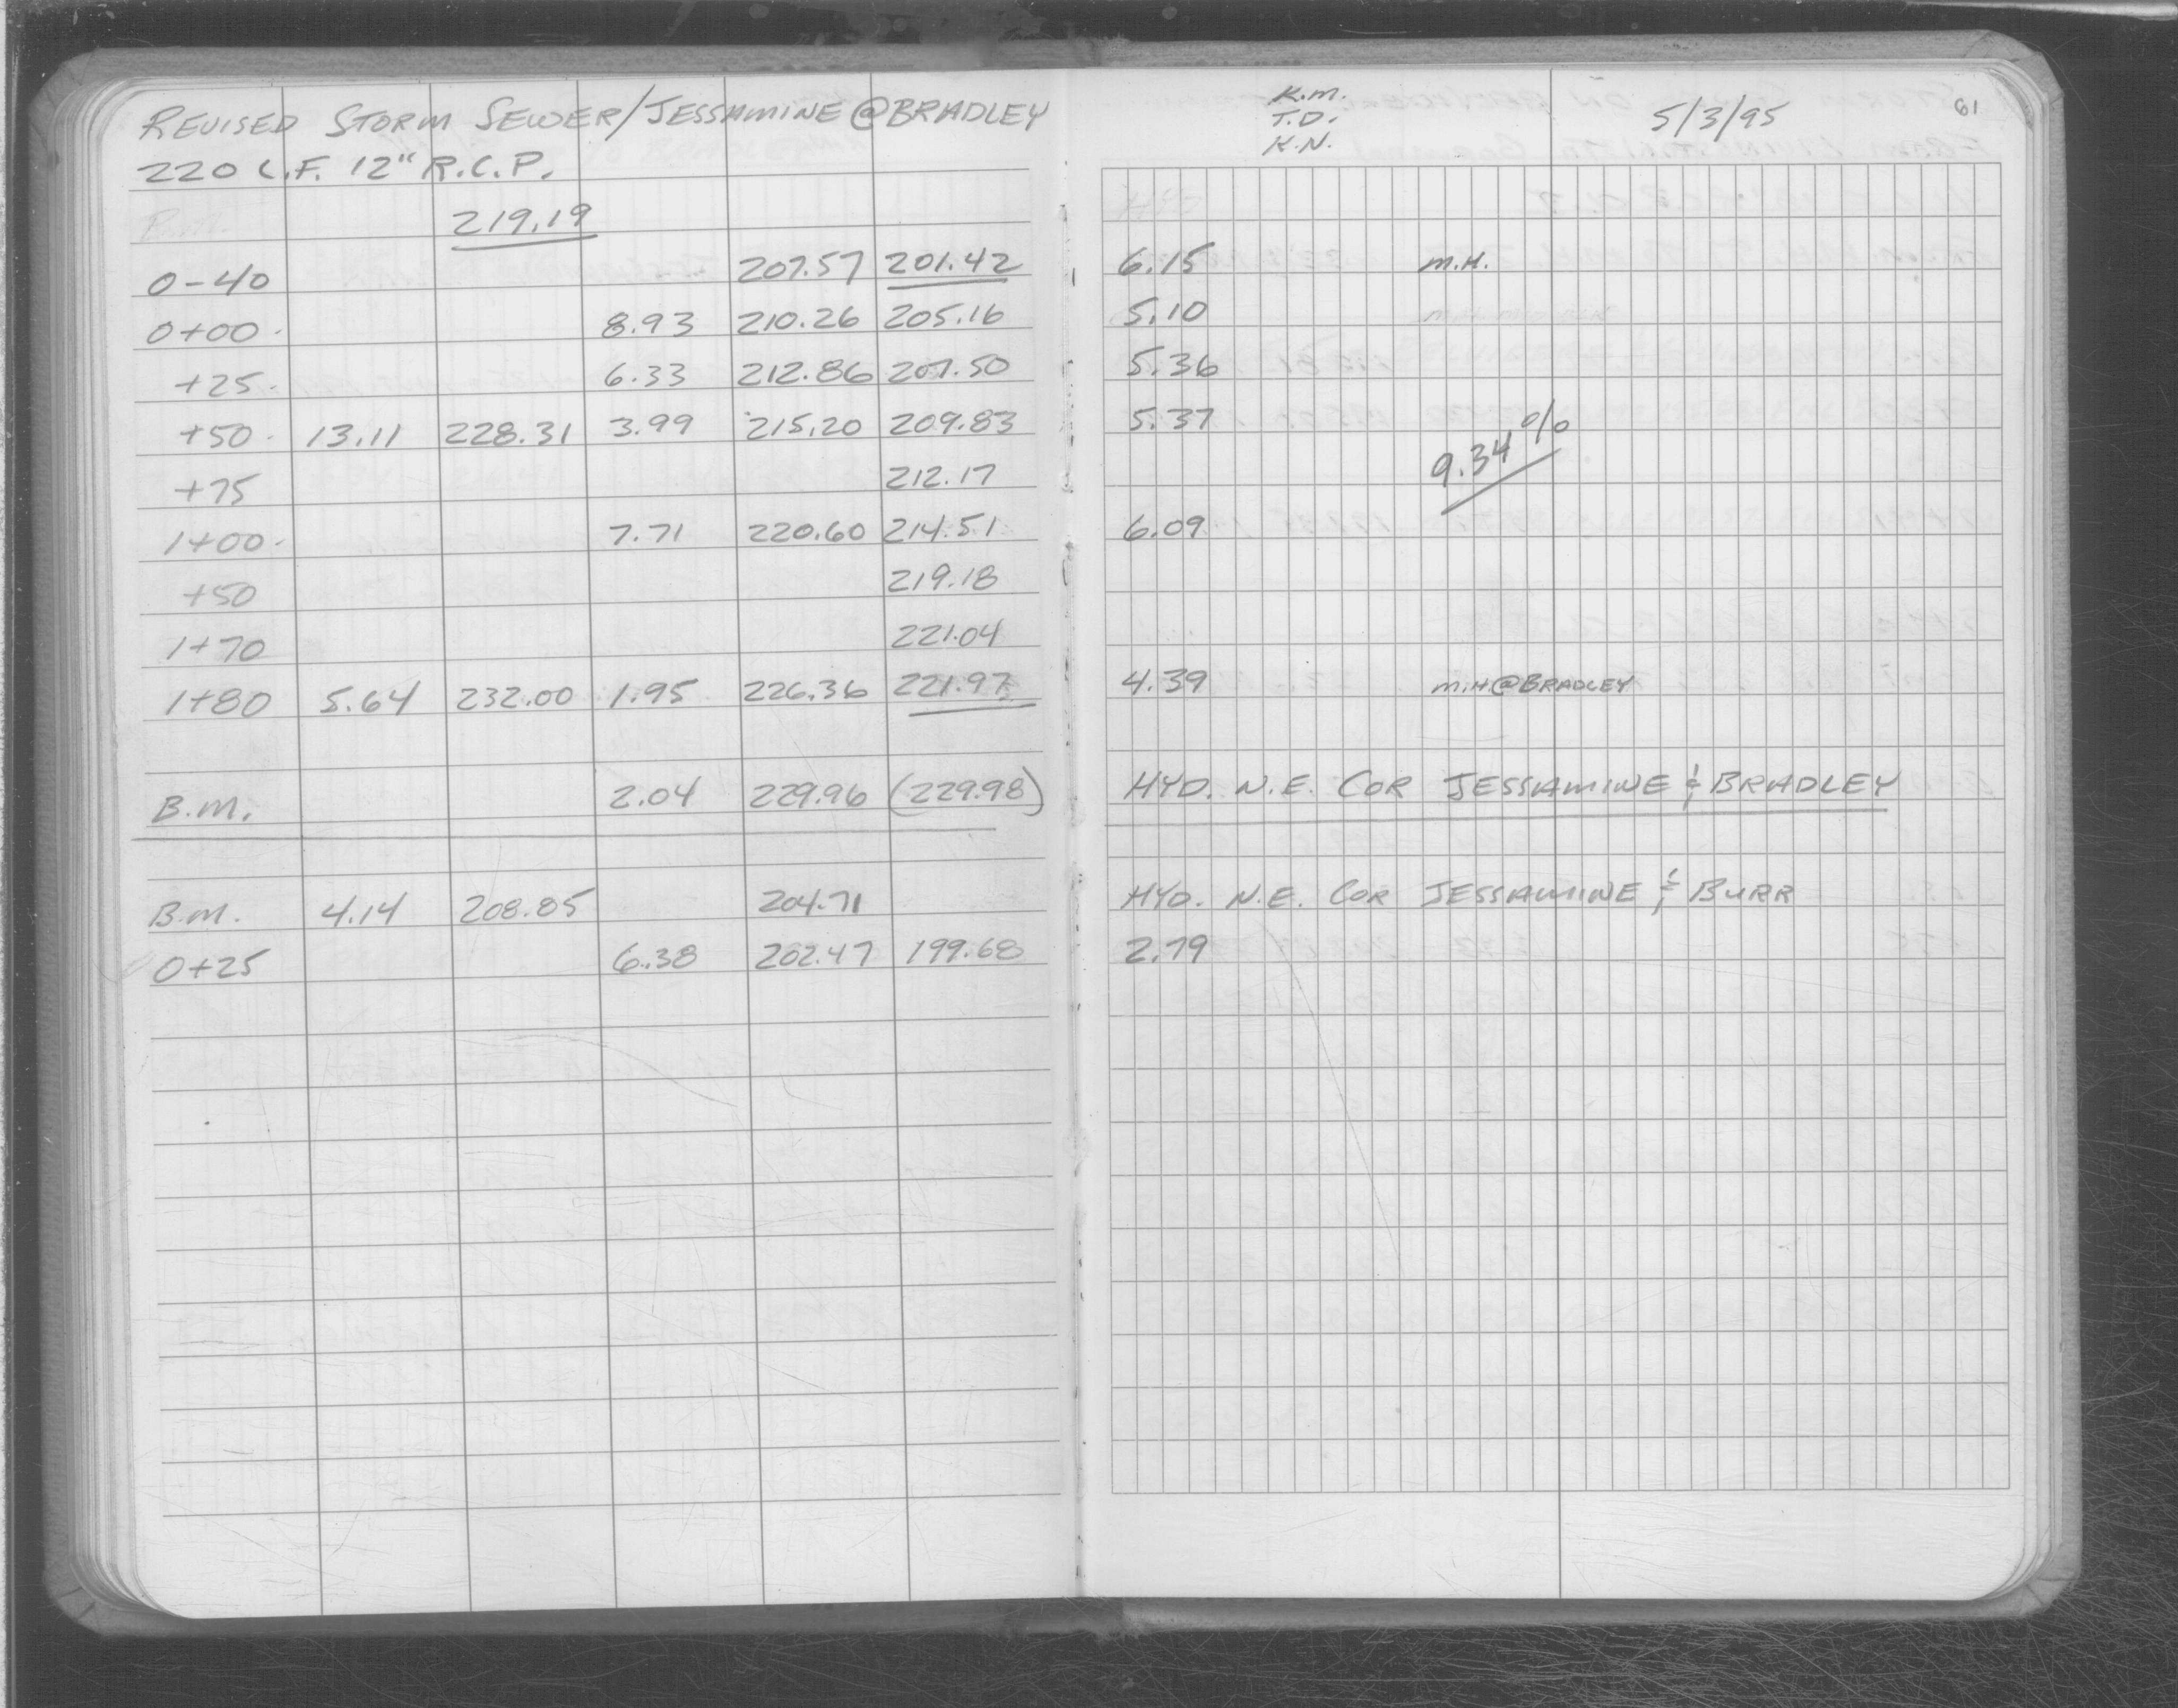 REVISED STORM SEWER/JESSAMINE @ BRADLEY
220 L.F. 12" R.C.P.
B.M. 219.19
0-40 207.57 201.42
0+00 8.93 210.26 205.16
+25 6.33 212.86 207.50
+50 13.11 228.31 3.99 215.20 209.83
+75 212.17
1+00 7.71 220.60 214.51
+50 219.18
1+70 221.04
1+80 5.64 232.00 1.95 226.36 221.97
B.M. 2.04 229.96 (229.98)
B.M. 4.14 208.85 204.71
0+25 6.38 202.47 199.68
K.M.
T.D.
K.N.
5/3/95
61
6.15 M.H.
5.10
5.36
5.37
9.34%
6.09
4.39 M.H.@BRADLEY
HYD. N.E. COR JESSAMINE & BRADLEY
HYD. N.E. COR JESSAMINE & BURR
2.79